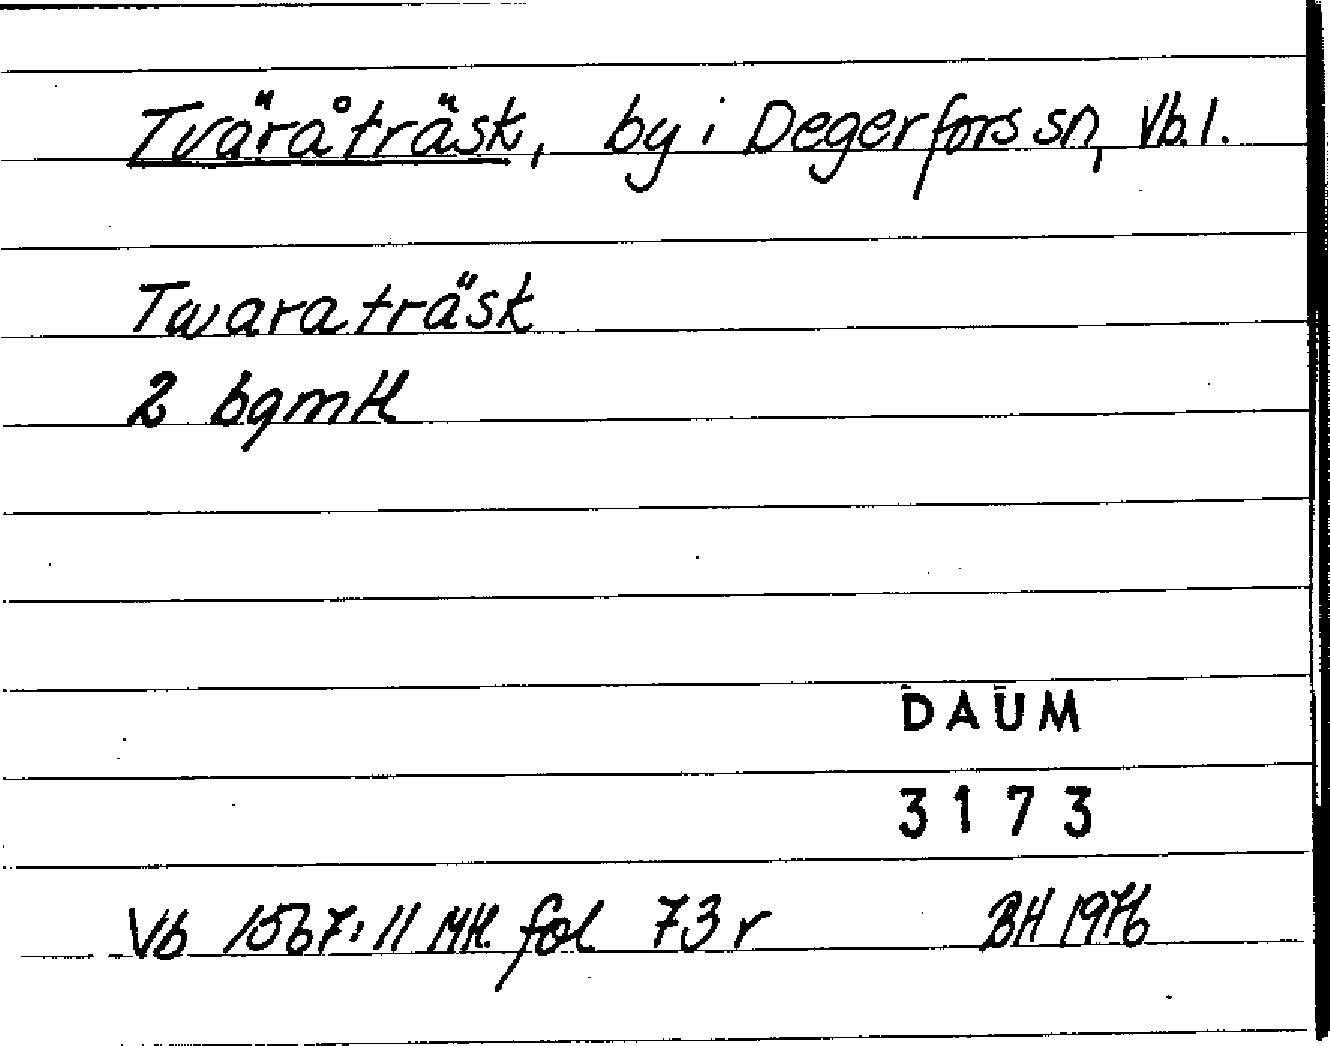 Tväråträsk, by i Degerfors sn, Vb. l.
Twaraträsk
2 bgmtl
DAUM
3173
Vb 1567:11 Mtl. fol 73 r BH 1976